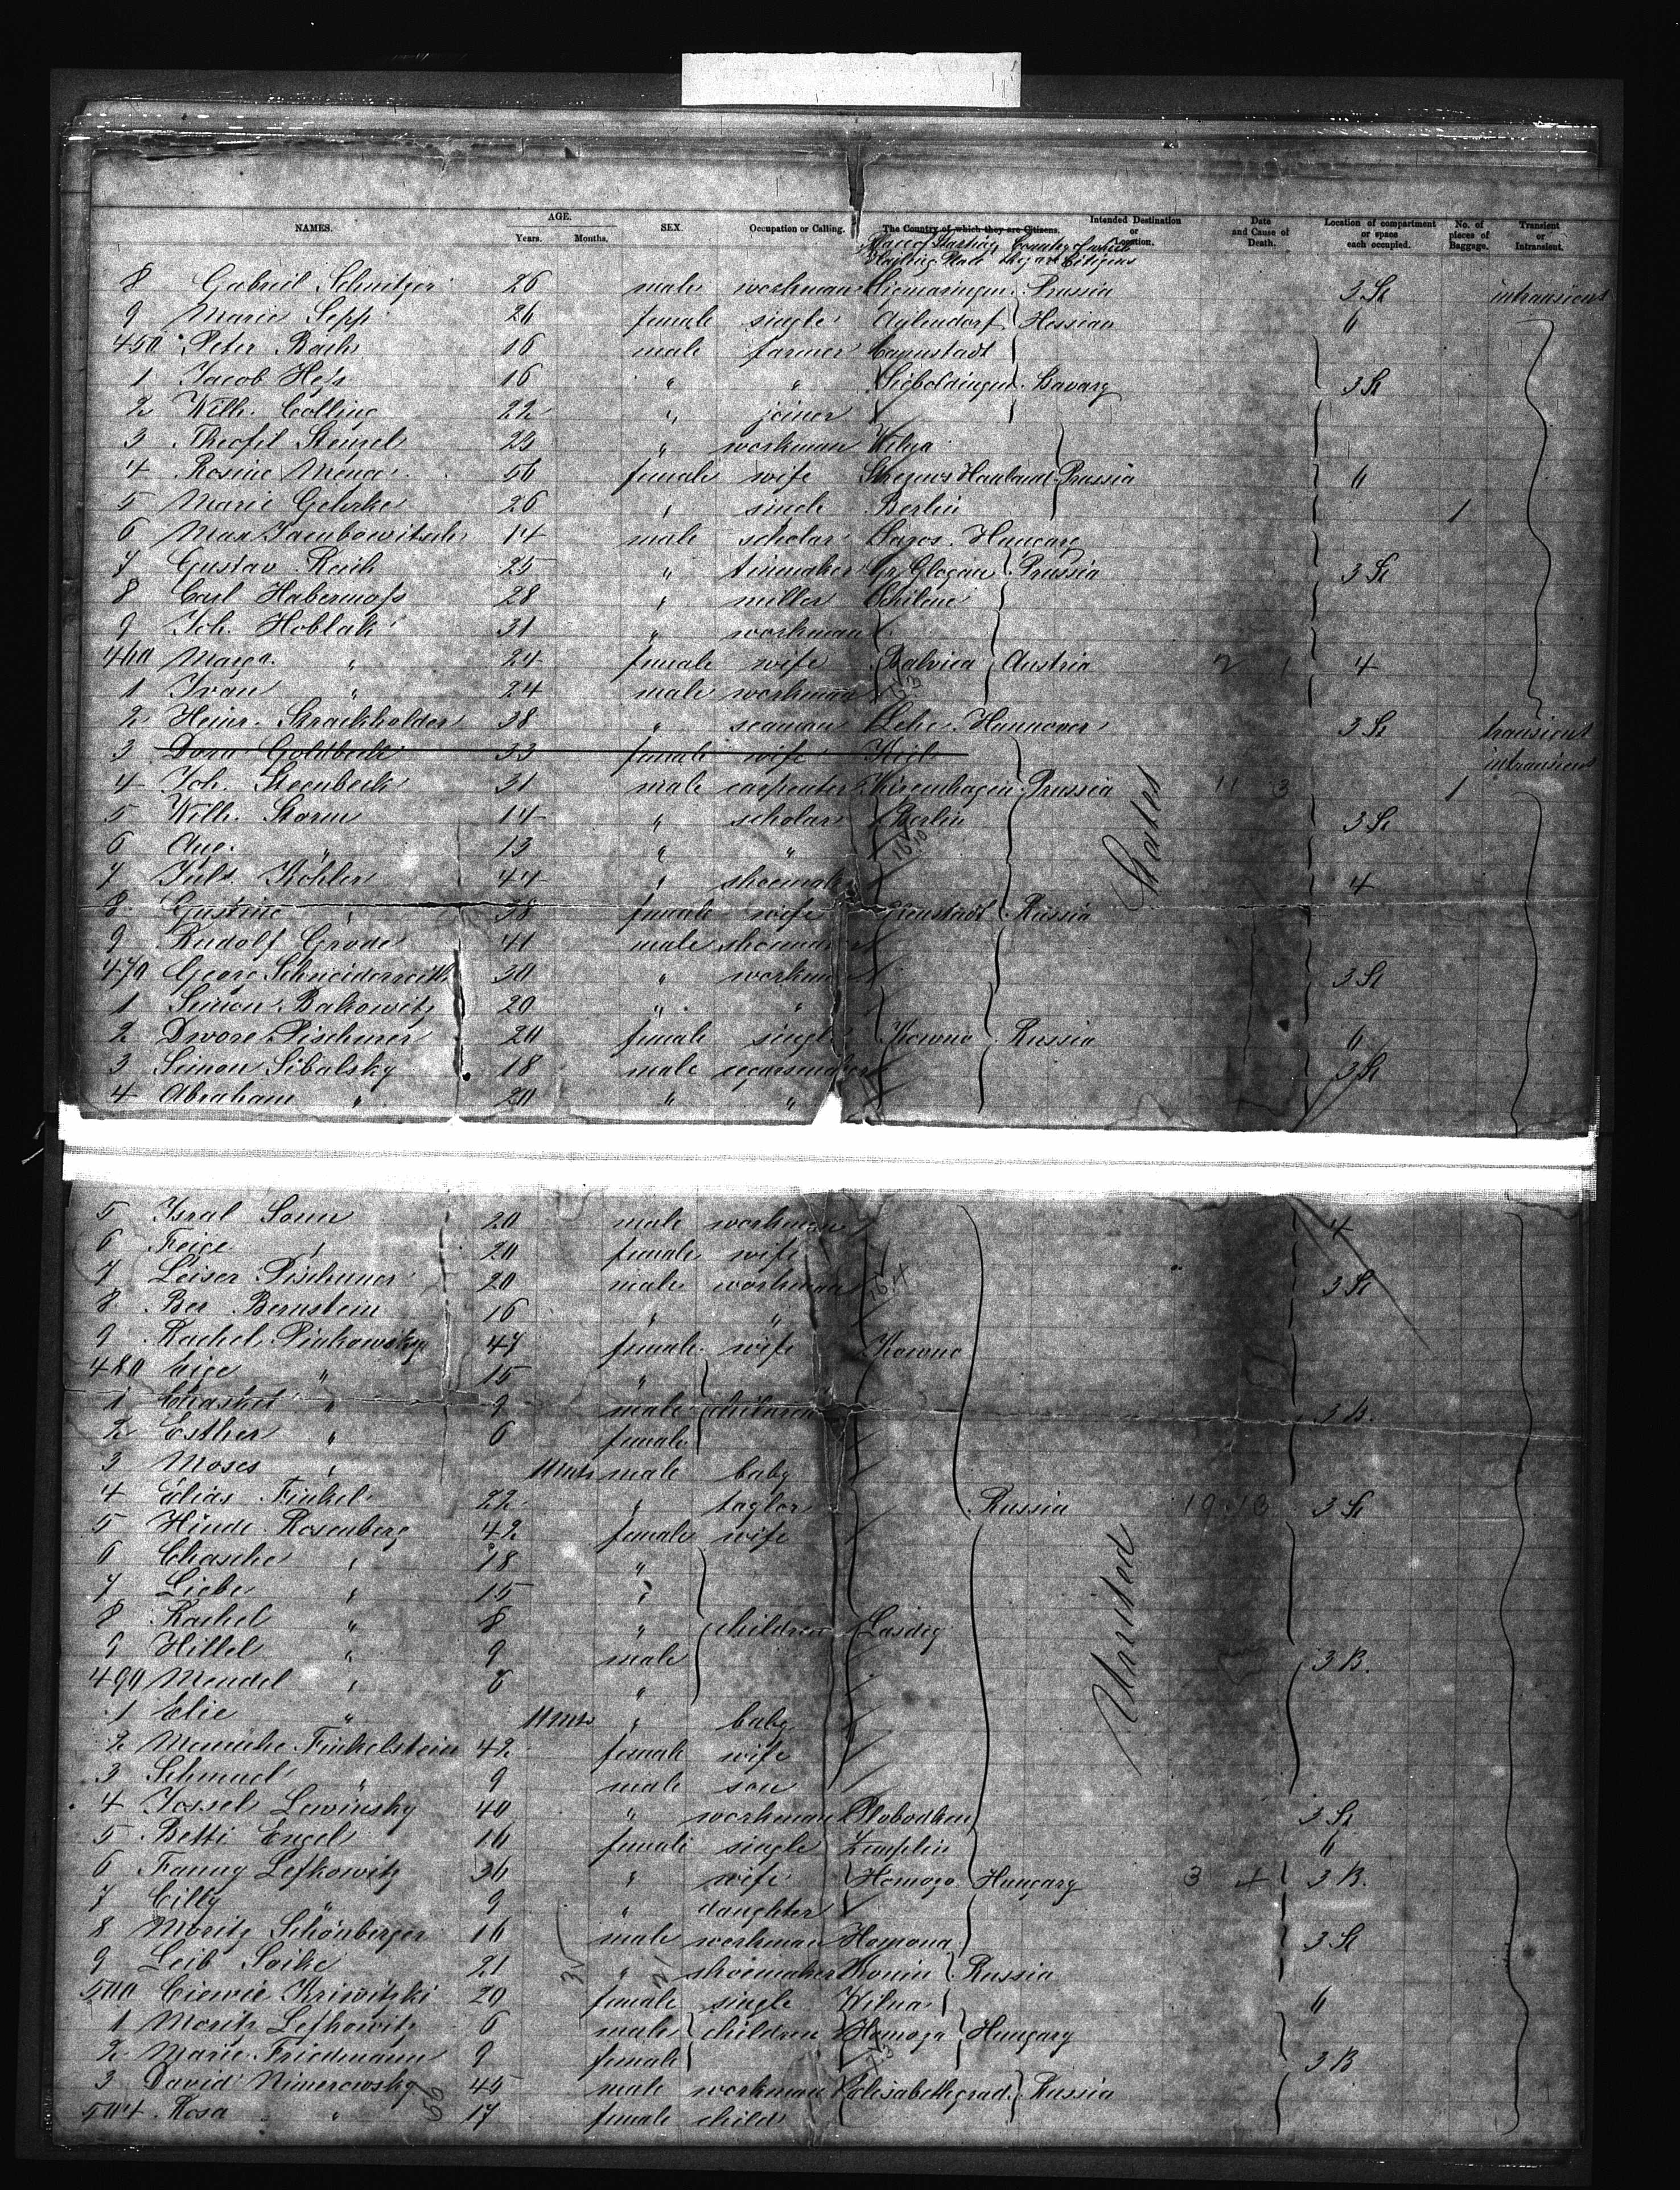 NAMES. AGE. Years. Months. SEX. Occupation or Calling. The Country of which they are Citizens. Intended Destination or Location. Date and Cause of Death. Location of compartment or space each occupied. No. of pieces of Baggage. Transient or Intransient.
Place of Starting Country of which they are Citizens
8 Gabriel Schnitzer 26 male workman Prussia 3 St intransient
9 Marie Sepp 26 female single Hessian "
450 Peter Bach 16 male farmer Cannstadt
1 Jacob Heſs 16 " " Sieboldingen Bavary 3 St
2 Wilh. Colling 22 " joiner
3 Theofil Stenzel 23 " workman Wilga
4 Rosine Menge 56 female wife Hauland Prussia "
5 Marie Gehrke 26 " single Berlin 1
6 Max Jacubowitsch 14 male scholar Saros Hungary
7 Gustav Reich 25 " tinmaker Gr. Glogau Prussia 3 St
8 Carl Habermoſs 28 " miller
9 Joh. Hoblak 31 " workman
460 Marga. " 24 female wife Austria 2 1 4
1 Ivan " 24 male workman
2 Heinr. Strackholder 38 " seaman Lehe Hannover 3 St transient
3 Dora Goldbeck 33 female wife Kiel intransient
4 Joh. Steenbeck 31 male carpenter Prussia 11 3 1
5 Wilh. Storm 14 " scholar Berlin 3 St
6 Aug. " 13 " "
7 Juls. Köhler 44 " shoemaker 4
8 Gustine " 38 female wife Neustadt Russia
9 Rudolf Grode 41 male shoemaker
470 Georg Schneiderreith 30 " workman 3 St
1 Simon Bakowitz 20 " "
2 Dwore Pischmer 20 female single Kowno Russia "
3 Simon Sibalsky 18 male cigarmaker 3 St
4 Abraham " 20 " "
States
5 Isral Sonn 20 male workman 4
6 Feige " 20 female wife
7 Leiser Pischmer 20 male workman 3 St
8 Ber Bernstein 16 " "
9 Rachel Pinkowsky 47 female wife Kowno
480 " 15 "
1 Chaskel " 9 male children 3 B.
2 Esther " 6 female
3 Moses " 11 mts male baby
4 Elias Finkel 22 " taylor Russia 19 13 3 St
5 Hinde Rosenberg 42 female wife
6 Chasche " 18 "
7 Liebe " 15 "
8 Rachel " 8 " children Lasdig
9 Hillel " 9 male 3 B.
490 Mendel " 6 "
1 Elie " 11 mts " baby
2 Menuche Finkelstein 42 female wife
3 Schmuel " 9 male son
4 Jossel Lewinsky 40 " workman 3 St
5 Betti Engel 16 female single Zemplin "
6 Fanny Lefkowitz 36 " wife Homogo Hungary 3 4 3 B.
7 Cilly " 9 " daughter
8 Moritz Schönberger 16 male workman Homona 3 St
9 Leib Soike 21 " shoemaker Konin Russia
500 Ciewie Kriwitzki 20 female single Wilna "
1 Moritz Lefkowitz 6 male children Homoga Hungary
2 Marie Friedmann 9 female 3 B
3 David Nimerowsky 45 male workman Elisabethgrad Russia
504 Rosa " 17 female child
United